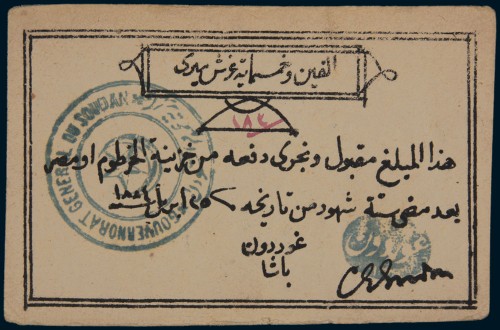 الفين وخمسماية غرش ميرى
١٨٤
هذا المبلغ مقبول ونجرى دفعه من خزينة الخرطوم او مصر
بعد مضى ستة شهور من تاريخه ٢٥ ابريل ١٨٨٤
غوردون
باشا
GOUVERNORAT GENERAL DU SOUDAN